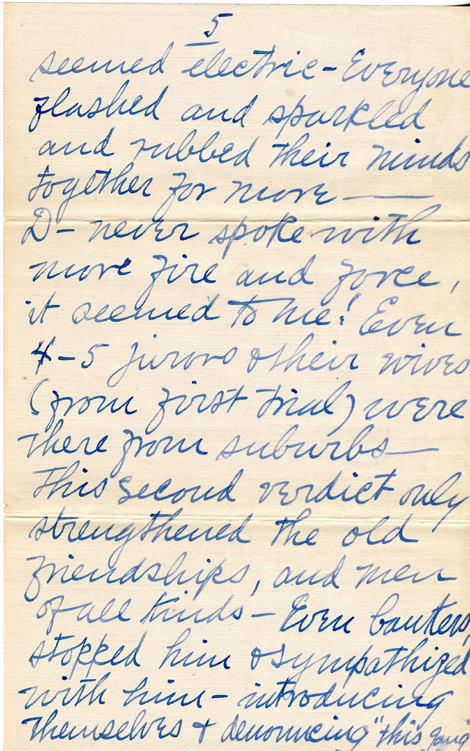 5
seemed electric - Everyone
flashed and sparkled
and rubbed their minds
together for more —
D - never spoke with
more fire and force,
it seemed to me! Even
4-5 jurors & their wives
(from first trial) were
there from suburbs —
This second verdict only
strengthened the old
friendships, and men
of all kinds - Even bankers
stopped him & sympathized
with him - introducing
themselves & denouncing "this gang